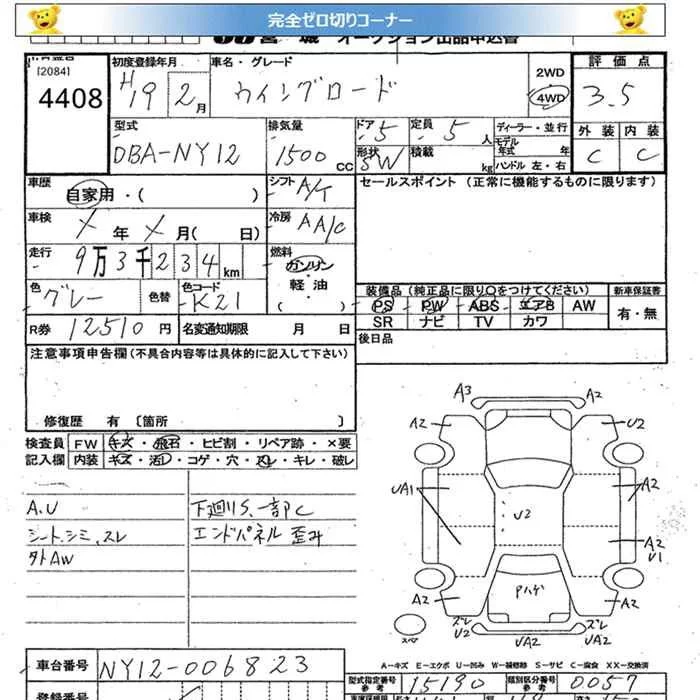 完全ゼロ切りコーナー
宮城 オークション出品申込書
[2084]
4408
初度登録年月
H19 2月
車名・グレード
ウイングロード
2WD
4WD
評価点
3.5
外装 内装
C C
型式
DBA-NY12
排気量
1500 CC
ドア 5
形状 SW
定員 5 人
積載 kg
ディーラー・並行
モデル年式 年
ハンドル 左・右
車歴
自家用・( )
シフト A/T
セールスポイント (正常に機能するものに限ります)
車検
X 年 X 月( 日)
冷房 AA/C
走行
9万3千234km
燃料
ガソリン
軽・油
( )
色
グレー
色替
色コード
K21
装備品(純正品に限り○をつけてください)
PS PW ABS エアB AW
SR ナビ TV カワ
新車保証書
有・無
R券 12510円
名変通知期限 月 日
後日品
注意事項申告欄(不具合内容等は具体的に記入して下さい)
修復歴 有 〔箇所 〕
検査員記入欄
FW キズ・飛石・ヒビ割・リペア跡・×要
内装 キズ・汚レ・コゲ・穴・スレ・キレ・破レ
A.U
シート.シミ.スレ
外AW
下廻りS.一部C
エンドパネル 歪み
A3 A2
A2 U2
UA1 U2 A2
A2
U1
A2 Pハゲ A2
スペア
ズレ
U2
UA2
ズレ
UA2
A－キズ E－エクボ U－凹み W－補修跡 S－サビ C－腐食 XX－交換済
車台番号 NY12-006823
型式指定番号
参考
15190
類別区分番号
参考
0057